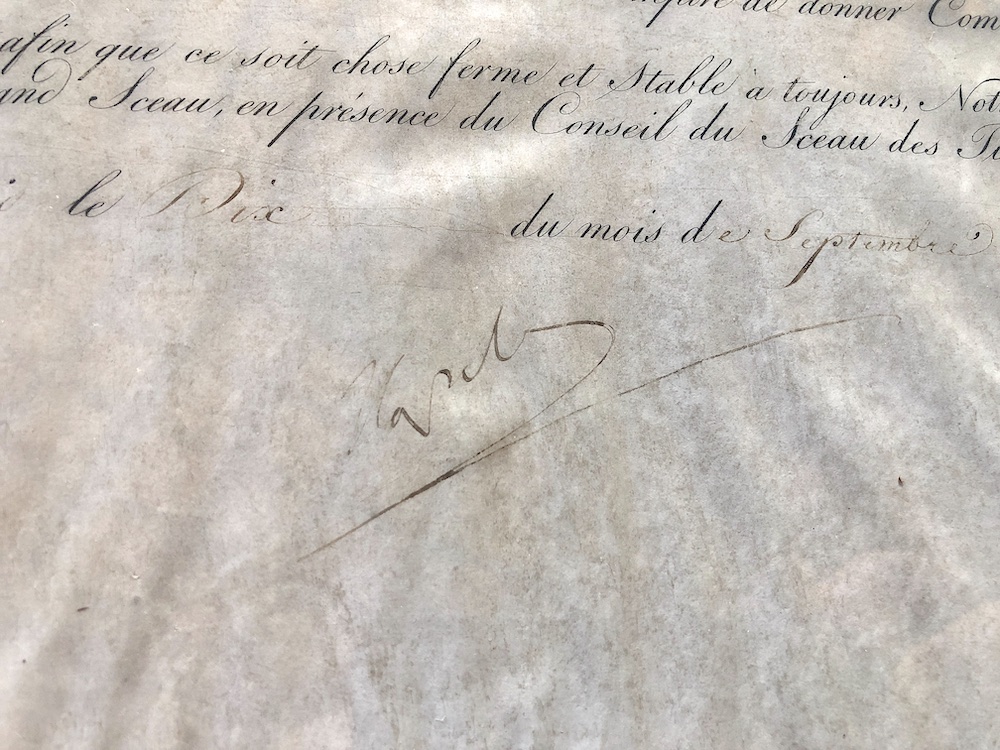 de donner Com
afin que ce soit chose ferme et Stable à toujours, Not
and Sceau, en présence du Conseil du Sceau des Ti
le Dix du mois de Septembre